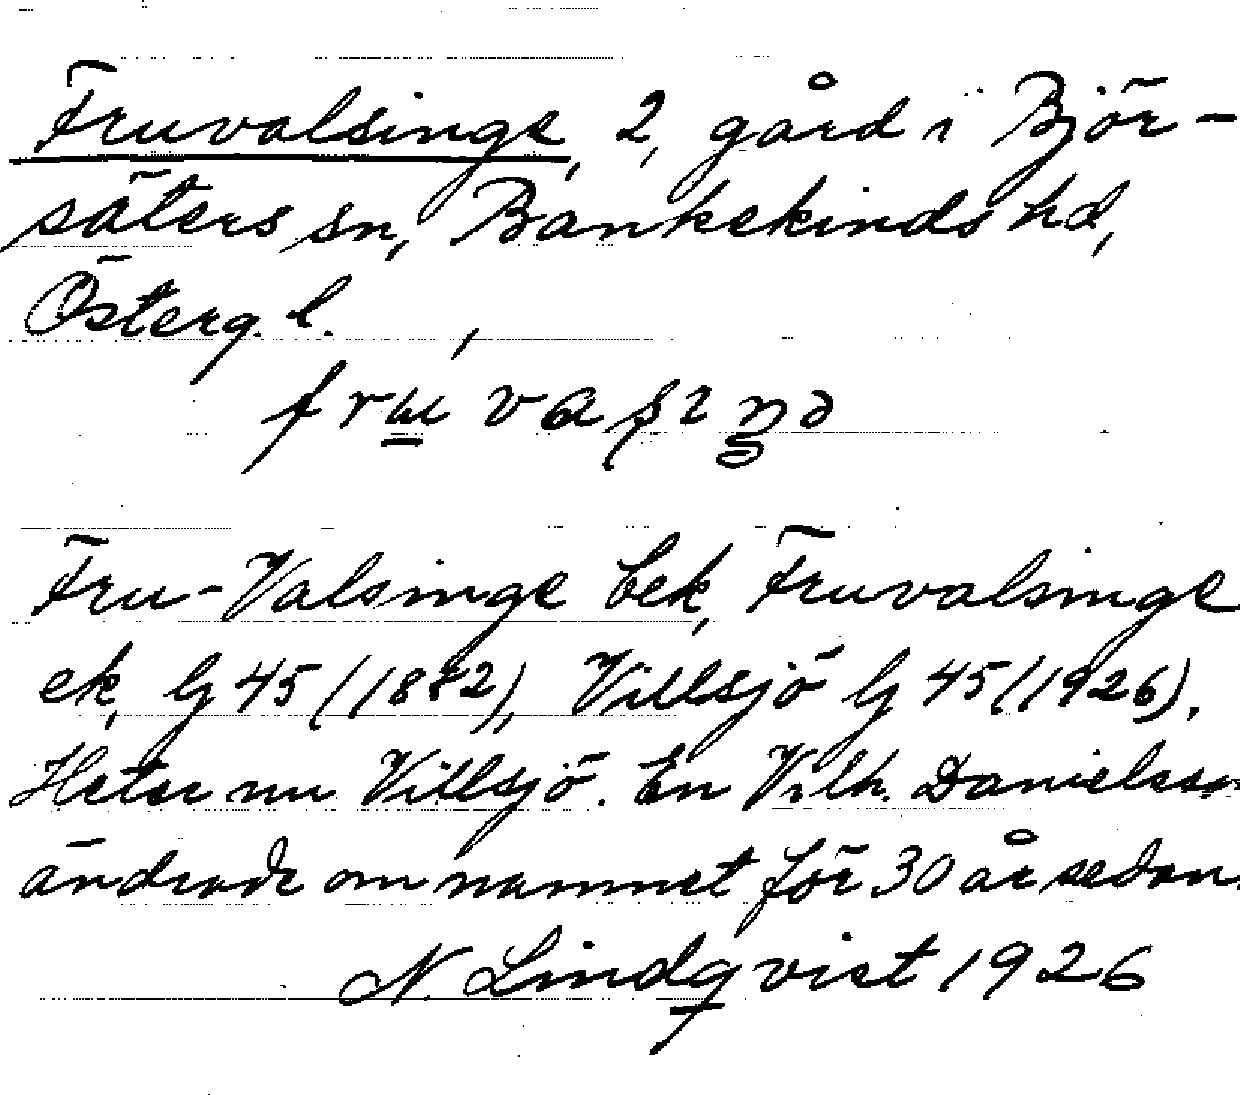 Fruvalsinge, 2, gård i Björ-
säters sn, Bankekinds hd,
Österg. l.
Fru-Valsinge bek, Fruvalsinge
ek, Lj 45 (1882), Villsjö Lj 45 (1926).
Heter nu Villsjö. En Vilh. Danielsson
ändrade om namnet för 30 år sedan.
N. Lindqvist 1926